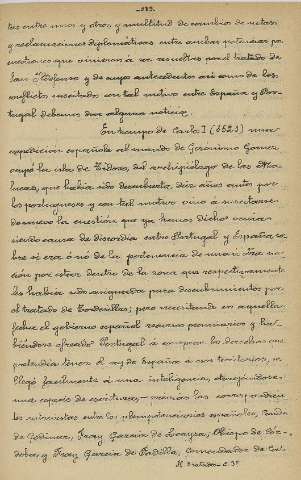 -813-
tes entre unos y otros, y multitud de cambios de notas
y reclamaciones diplomáticas entre ambas potencias pe-
ninsulares que vinieron a ser resueltas por el tratado de
San Ildefonso y de cuyos antecedentes así como de los
conflictos suscitados con tal motivo entre España y Por-
tugal debemos dar alguna noticia.
En tiempo de Carlos I (1521) una
expedición española al mando de Gerónimo Gomez
ocupó la isla de Tidore, del archipiélago de las Mo-
lucas, que había sido descubierta diez años antes por
los portugueses y con tal motivo vino a suscitarse
de nuevo la cuestión que ya hemos dicho venía
siendo causa de discordia entre Portugal y España so-
bre si era ó no de la pertenencia de una ú otra na-
ción por estar dentro de la zona que respectivamente
les había sido asignada para descubrimientos por
el tratado de Tordesillas; pero necesitando en aquella
fecha el gobierno español recursos pecuniarios y ha-
biéndose ofrecido Portugal a comprar los derechos que
pretendía tener el rey de España a ese territorio, se
llegó facilmente á una inteligencia, otorgándose
una especie de escritura
entre los plenipotenciarios españoles,
de Gatinara, Fray García de Loaysa, Obispo de Cór-
doba, y Fray García de Padilla, Comendador de Ca-